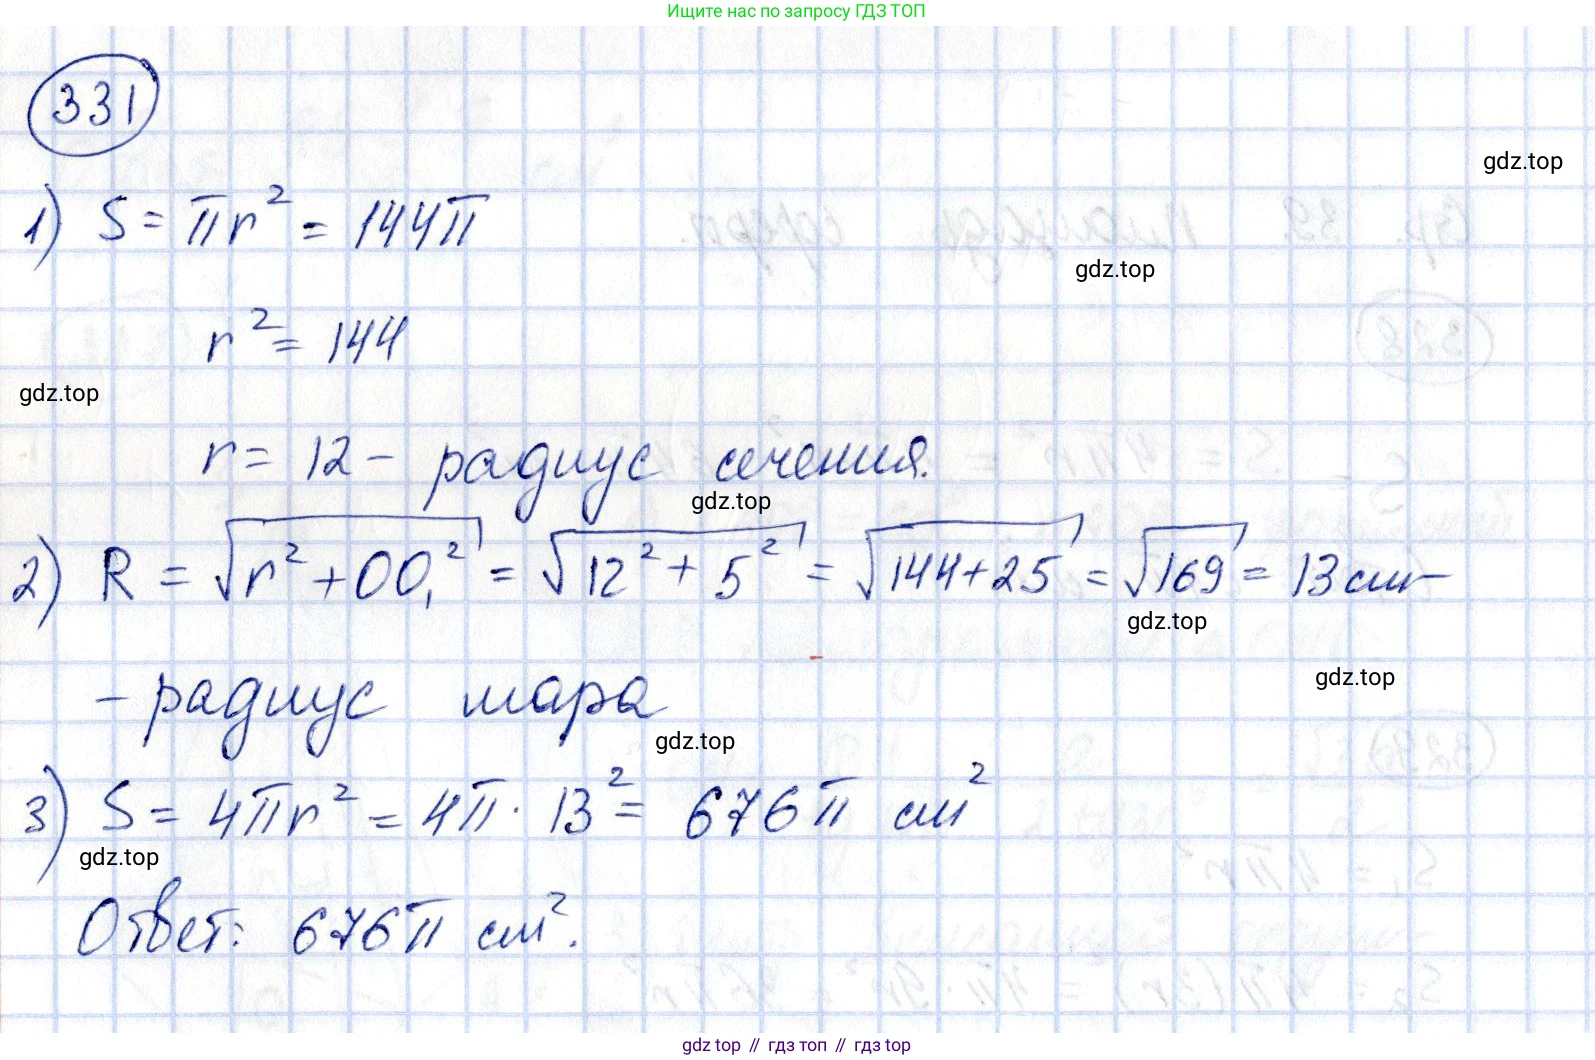 Ищите нас по запросу ГДЗ ТОП
331
gdz.top
1) S = πr² = 144π
gdz.top
r² = 144
gdz.top
r = 12 - радиус сечения.
gdz.top
2) R = √(r² + OO₁²) = √(12² + 5²) = √(144+25) = √169 = 13 см -
gdz.top
gdz.top
- радиус шара
gdz.top
3) S = 4πr² = 4π · 13² = 676π см²
gdz.top
Ответ: 676π см².
gdz.top // гдз топ // гдз.top